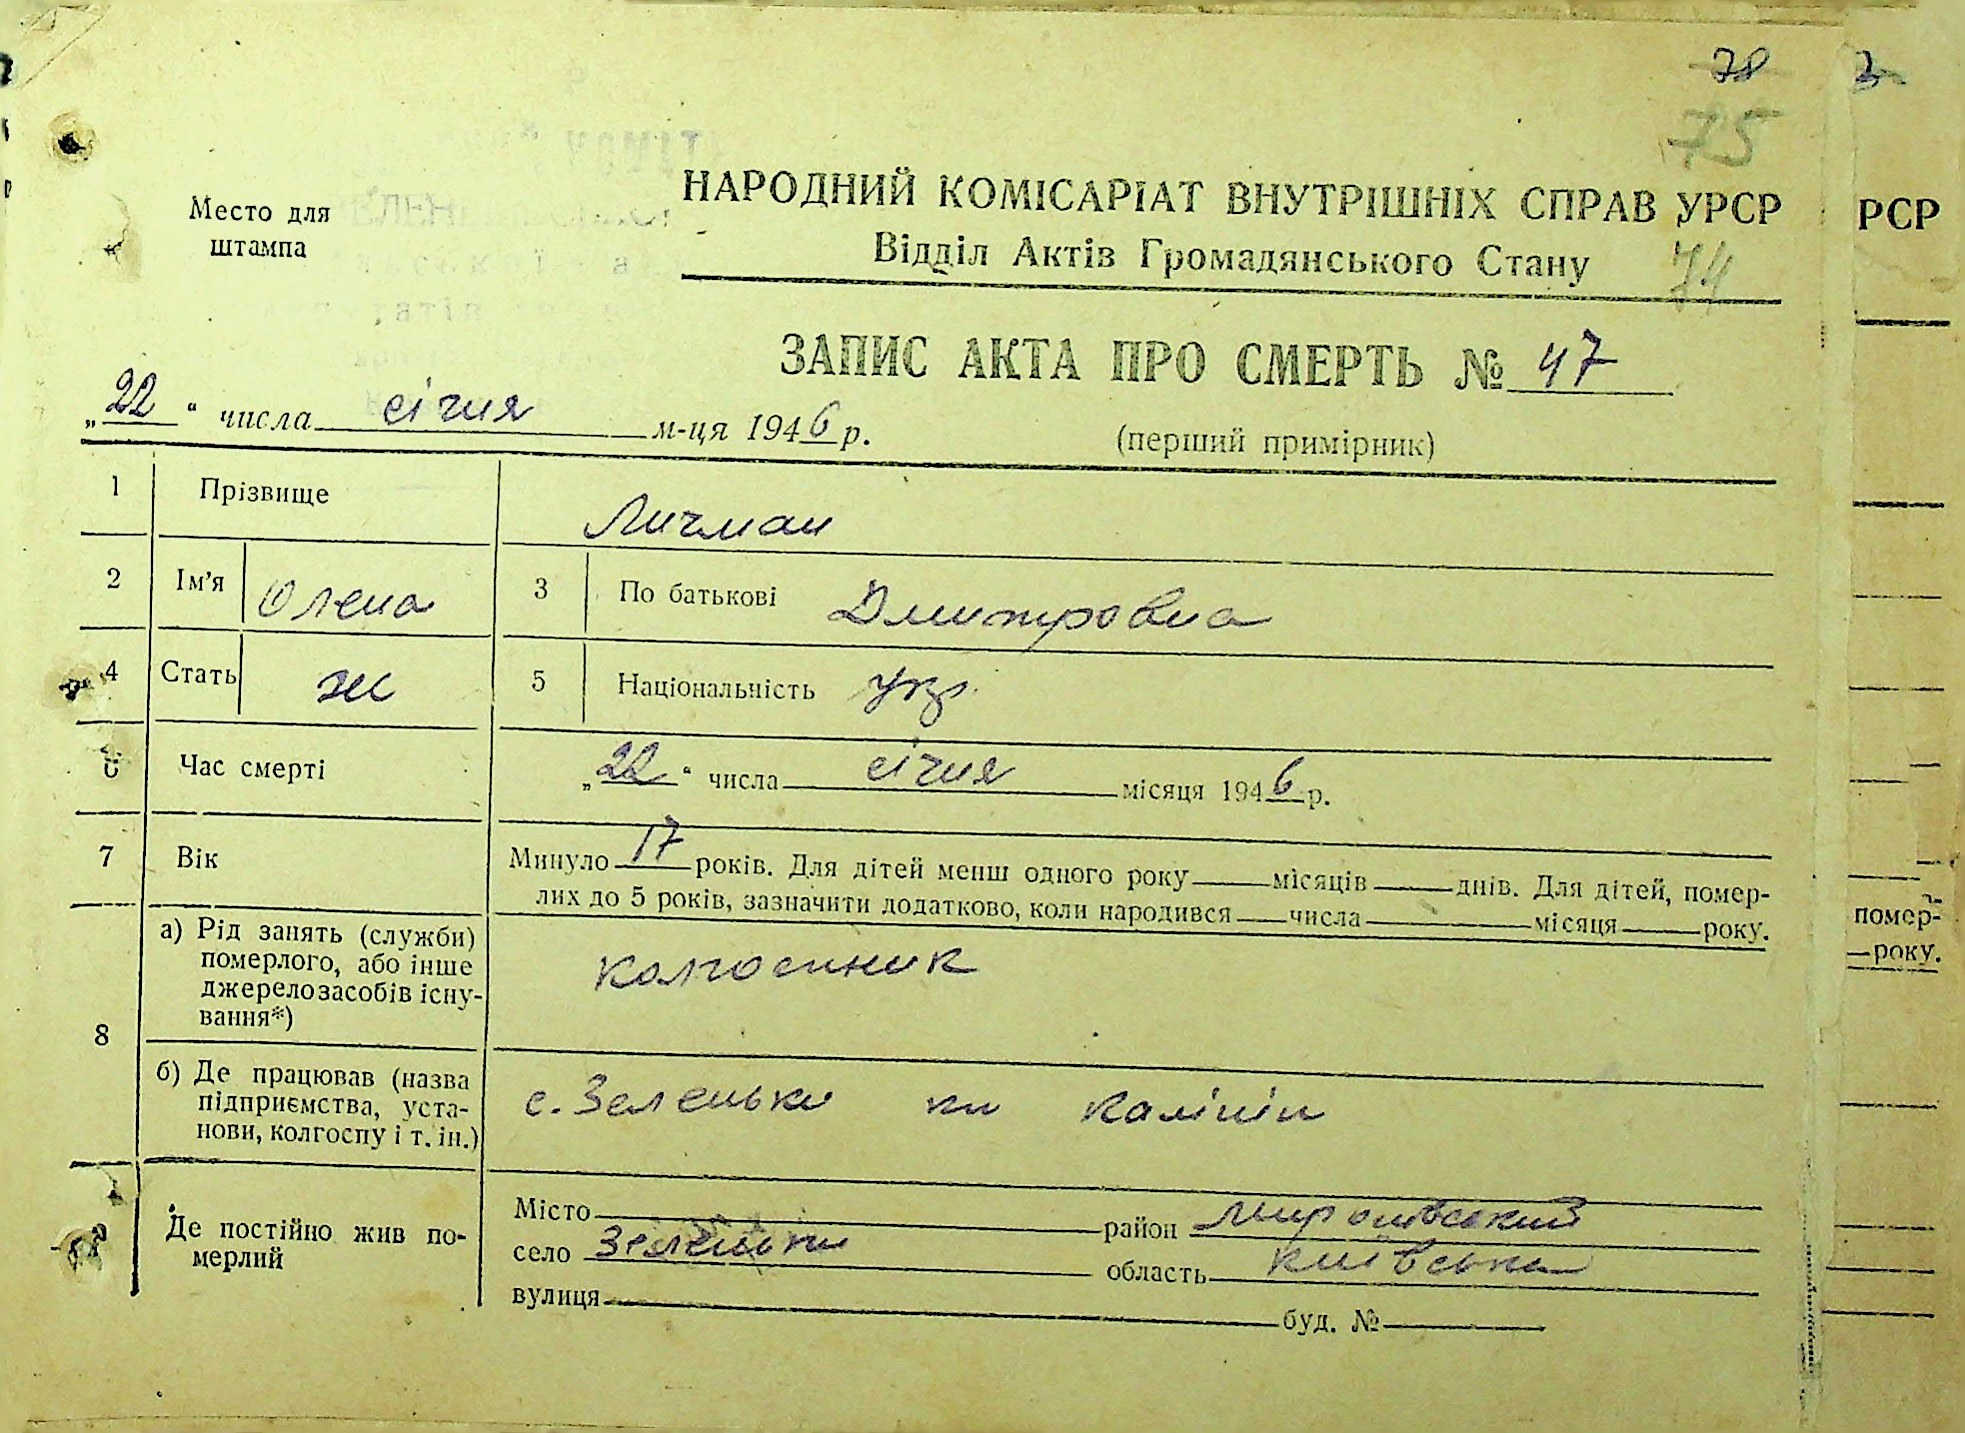 78
75
Место для
штампа
НАРОДНИЙ КОМІСАРІАТ ВНУТРІШНІХ СПРАВ УРСР
Відділ Актів Громадянського Стану
74
ЗАПИС АКТА ПРО СМЕРТЬ № 47
„22“ числа січня м-ця 1946 р.
(перший примірник)
1 Прізвище Личман
2 Ім'я Олена 3 По батькові Дмитровна
4 Стать ж 5 Національність укр.
6 Час смерті „22“ числа січня місяця 1946 р.
7 Вік Минуло 17 років. Для дітей менш одного року місяців днів. Для дітей, помер-
лих до 5 років, зазначити додатково, коли народився числа місяця року.
8 а) Рід занять (служби)
померлого, або інше
джерело засобів існу-
вання*)
колгоспник
б) Де працював (назва
підприємства, уста-
нови, колгоспу і т. ін.)
с. Зеленьки кл Калінін
Де постійно жив по-
мерлий
Місто район Миронівський
село Зеленьки область київська
вулиця буд. №
РСР
помер-
року.